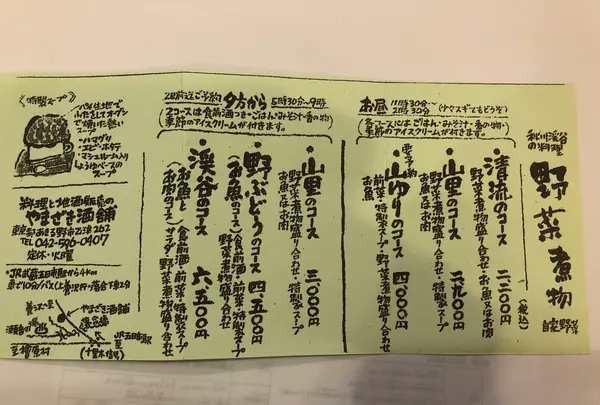 秋川渓谷
の料理
野菜煮物
自家野菜
お昼 11時30分〜
2時30分
(ケケスギてもどうぞ)
(各コースにはごはん・みそ汁・香の物・
季節のアイスクリームが付きます。)
・清流のコース 二二〇〇円
(税込)
お魚又はお肉
野菜煮物盛り合わせ・特製スープ
・山里のコース 二九〇〇円
野菜煮物盛り合わせ・特製スープ
お魚 お肉
・山ゆりのコース 四〇〇〇円
要予約
前菜・野菜煮物盛り合わせ・特製スープ
お魚 お肉
2日前迄ご予約 夕方から 5時30分〜9時
(各コースは食前酒つき・ごはん・みそ汁・香の物・
季節のアイスクリームが付きます。)
・山里のコース 三〇〇〇円
野菜煮物盛り合わせ・特製スープ
お魚又はお肉
・野ぶどうのコース 四五〇〇円
(お魚のコース)
食前酒・前菜・特製スープ
野菜煮物盛り合わせ
・渓谷のコース 六五〇〇円
(お魚と
お肉のコース)
食前酒・前菜・特製スープ
サラダ・野菜煮物盛り合わせ
《特製スープ》
パイ生地で
ふたをしてオーブン
で焼いた熱い
スープ
・ハマグリ
・エビ・ホタテ
・マッシュルーム入り
しょうゆベースの
スープ
料理と地酒販売の
やまざき酒舗
東京都あきる野市乙津262
TEL 042-596-0407
定休・火曜
・JR武蔵五日市駅から4km
車で10分/バスは養沢行・落合下車2分
養沢へ至
やまざき酒舗
JR五日市駅
至檜原村
(十里木信号)